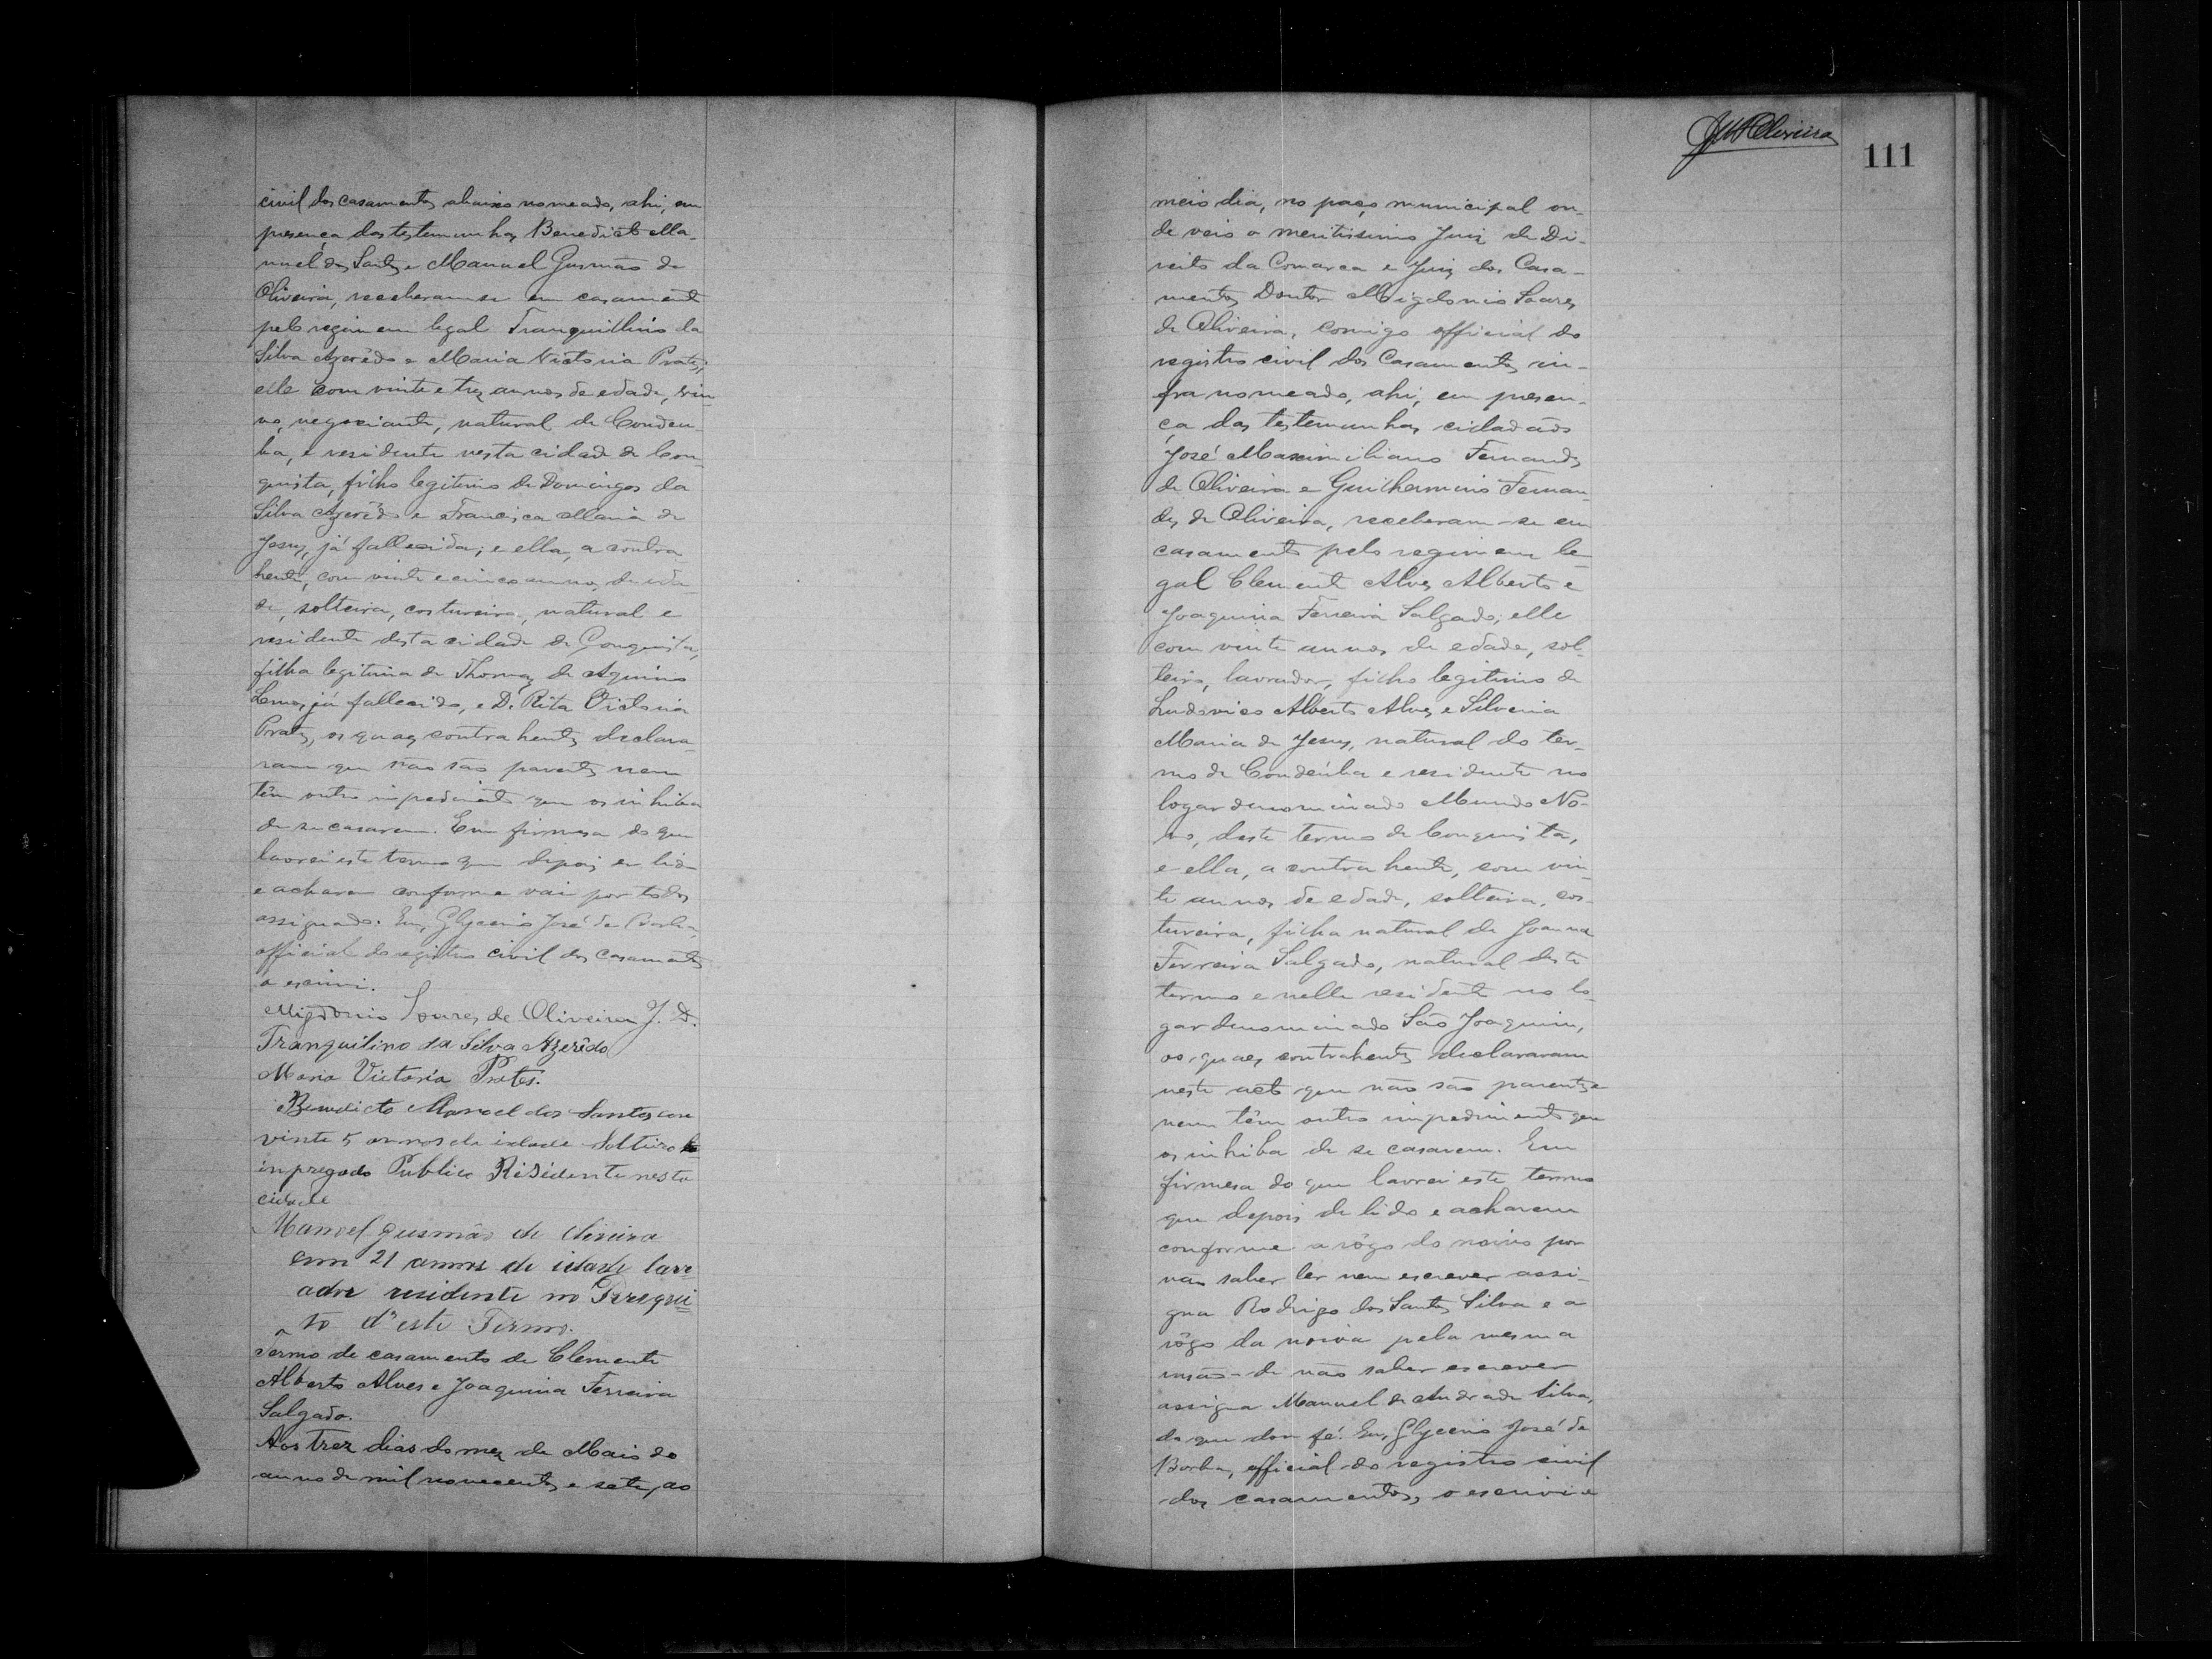 civil dos casamentos abaixo nomeado, ahi, em
presença das testemunhas Benedicto Ma-
nuel dos Santos e Manuel Gusmão de
Oliveira, receberam-se em casamento
pelo regimem legal Tranquillino da
Silva Azerêdo e Maria Victoria Prates;
elle com vinte e trez annos de edade, viu-
vo, negociante, natural de Condeu-
ba, e residente nesta cidade de Con-
quista, filho legitimo de Domingos da
Silva Azerêdo e Francisca Maria de
Jesus, já fallecida; e ella, a contra-
hente, com vinte e cinco annos de eda-
de, solteira, costureira, natural e
residente desta cidade de Conquista,
filha legitima de Thomaz de Aquino
Lemos, já fallecido, e D. Rita Victoria
Prates, os quaes contrahentes declara-
ram que não são parentes nem
têm outro impedimento que os inhiba
de se casarem. Em firmesa do que
lavrei este termo que depois de lido
e acharem conforme vai por todos
assignado. Eu, Glycerio José da Borba,
official do registro civil dos casamentos
o escrevi.
Migdonio Soares de Oliveira J. D.
Tranquilino da Silva Azerêdo
Maria Victoria Prates.
Benedicto Manoel dos Santos com
vinte 5 annos de idade Solteiro
inpregado Publico Risidente nesta
cidade
Manoel gusmão de oliveira
com 21 annos de idade lavr-
ador residente no Periqui-
to d'este Termo.
Termo de casamento de Clemente
Alberto Alves e Joaquina Ferreira
Salgado.
Aos trez dias do mez de Maio do
anno de mil novecentos e sete, ao
JMOliveira
111
meio dia, no paço municipal on-
de veio o meritissimo Juiz de Di-
reito da Comarca e Juiz dos Casa-
mentos Doutor Migdonio Soares
de Oliveira, comigo official do
registro civil dos Casamentos in-
fra nomeado, ahi, em presen-
ça das testemunhas cidadãos
José Maximiliano Fernandes
de Oliveira e Guilhermino Fernan-
des de Oliveira, receberam-se em
casamento pelo regimem le-
gal Clemente Alves Alberto e
Joaquina Ferreira Salgado; elle
com vinte annos de edade, sol-
teiro, lavrador, filho legitimo de
Ludovico Alberto Alves e Silveria
Maria de Jesus, natural do ter-
mo de Condeúba e residente no
logar denominado Mundo No-
vo, deste termo de Conquista,
e ella, a contrahente, com vin-
te annos de edade, solteira, cos-
tureira, filha natural de Joanna
Ferreira Salgado, natural deste
termo e nelle residente no lo-
gar denominado São Joaquim,
os quaes contrahentes declararam
neste acto que não são parentes
nem têm outro impedimento que
os inhiba de se casarem. Em
firmesa do que lavrei este termo
que depois de lido e acharem
conforme a rôgo do noivo por
não saber ler nem escrever assi-
gna Rodrigo dos Santos Silva e a
rôgo da noiva pela mesma
rasão de não saber escrever
assigna Manuel de Andrade Silva,
do que dou fé. Eu, Glycerio José da
Borba, official do registro civil
dos casamentos, o escrevi e